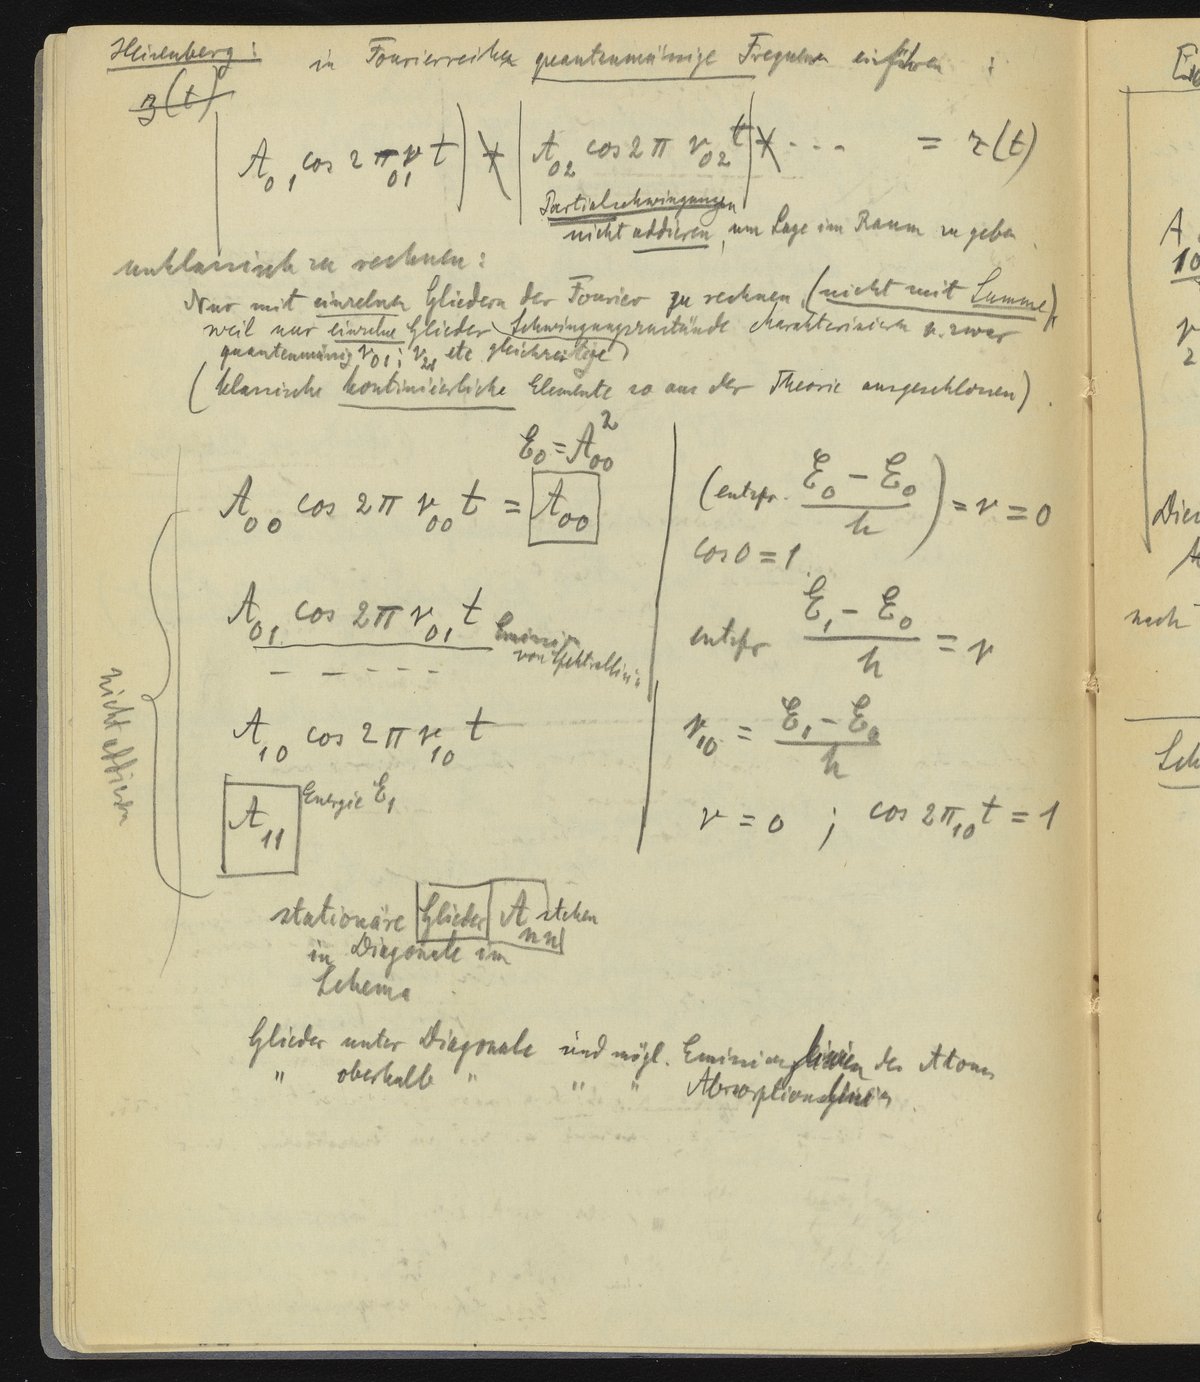 Heisenberg: in Fourierreihen quantenmässige Frequenzen einführen :
z(t)
A₀₁ cos 2π ν₀₁ t) + | A₀₂ cos 2π ν₀₂ t | + ... = z(t)
Partialschwingungen
nicht addieren, um Lage im Raum zu geben.
unklassisch zu rechnen:
Nur mit einzelnen Gliedern der Fourier zu rechnen, (nicht mit Summe),
weil nur einzelne Glieder Schwingungszustände charakterisieren u. zwar
quantenmässig ν₀₁; ν₂₁ etc gleichzeitige)
(klassische kontinuierliche Elemente so aus der Theorie ausgeschlossen).
E₀ = A₀₀²
A₀₀ cos 2π ν₀₀ t = A₀₀
(entspr. (E₀ − E₀)/h) = ν = 0
cos 0 = 1
A₀₁ cos 2π ν₀₁ t Emission
von Spektrallinie
entspr (E₁ − E₀)/h = ν
– – – – –
A₁₀ cos 2π ν₁₀ t
ν₁₀ = (E₁ − E₀)/h
A₁₁ Energie E₁
ν = 0 ; cos 2π₁₀ t = 1
nicht addieren
stationäre Glieder Aₙₙ stehen
in Diagonale im
Schema
Glieder unter Diagonale sind mögl. Emissionslinien des Atoms
" oberhalb " " " Absorptionslinien
A
10
ν
2
nach
Sch